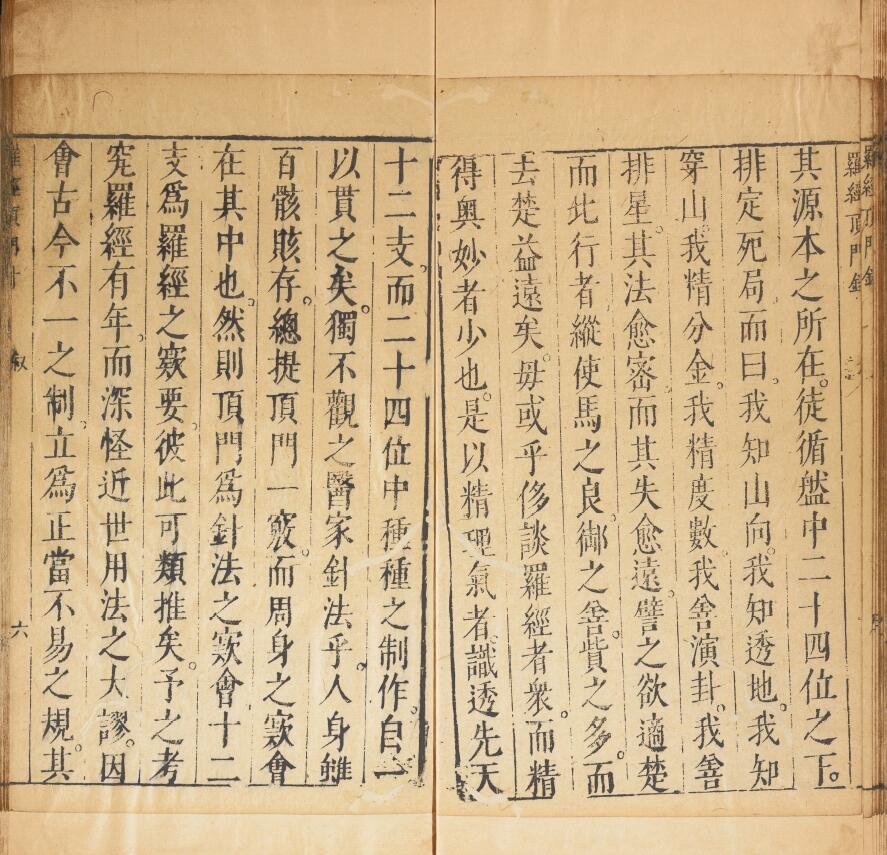 羅經頂門針
其源本之所在。徒循盤中二十四位之下。
排定死局而曰。我知山向。我知透地。我知
穿山。我精分金。我精度數。我善演卦。我善
排星。其法愈密而其失愈遠。譬之欲適楚
而北行者。縱使馬之良。御之善。貲之多。而
去楚益遠矣。毋或乎侈談羅經者衆。而精
得奥妙者少也。是以精理氣者。識透先天
十二支。而二十四位中種種之制作。自一
以貫之矣。獨不觀之醫家針法乎。人身雖
百骸賅存。總提頂門一竅。而周身之竅會
在其中也。然則頂門爲針法之竅會。十二
支爲羅經之竅要。彼此可類推矣。予之考
究羅經有年。而深怪近世用法之大謬。因
會古今不一之制。立爲正當不易之規。其
羅經頂門針
叙
六